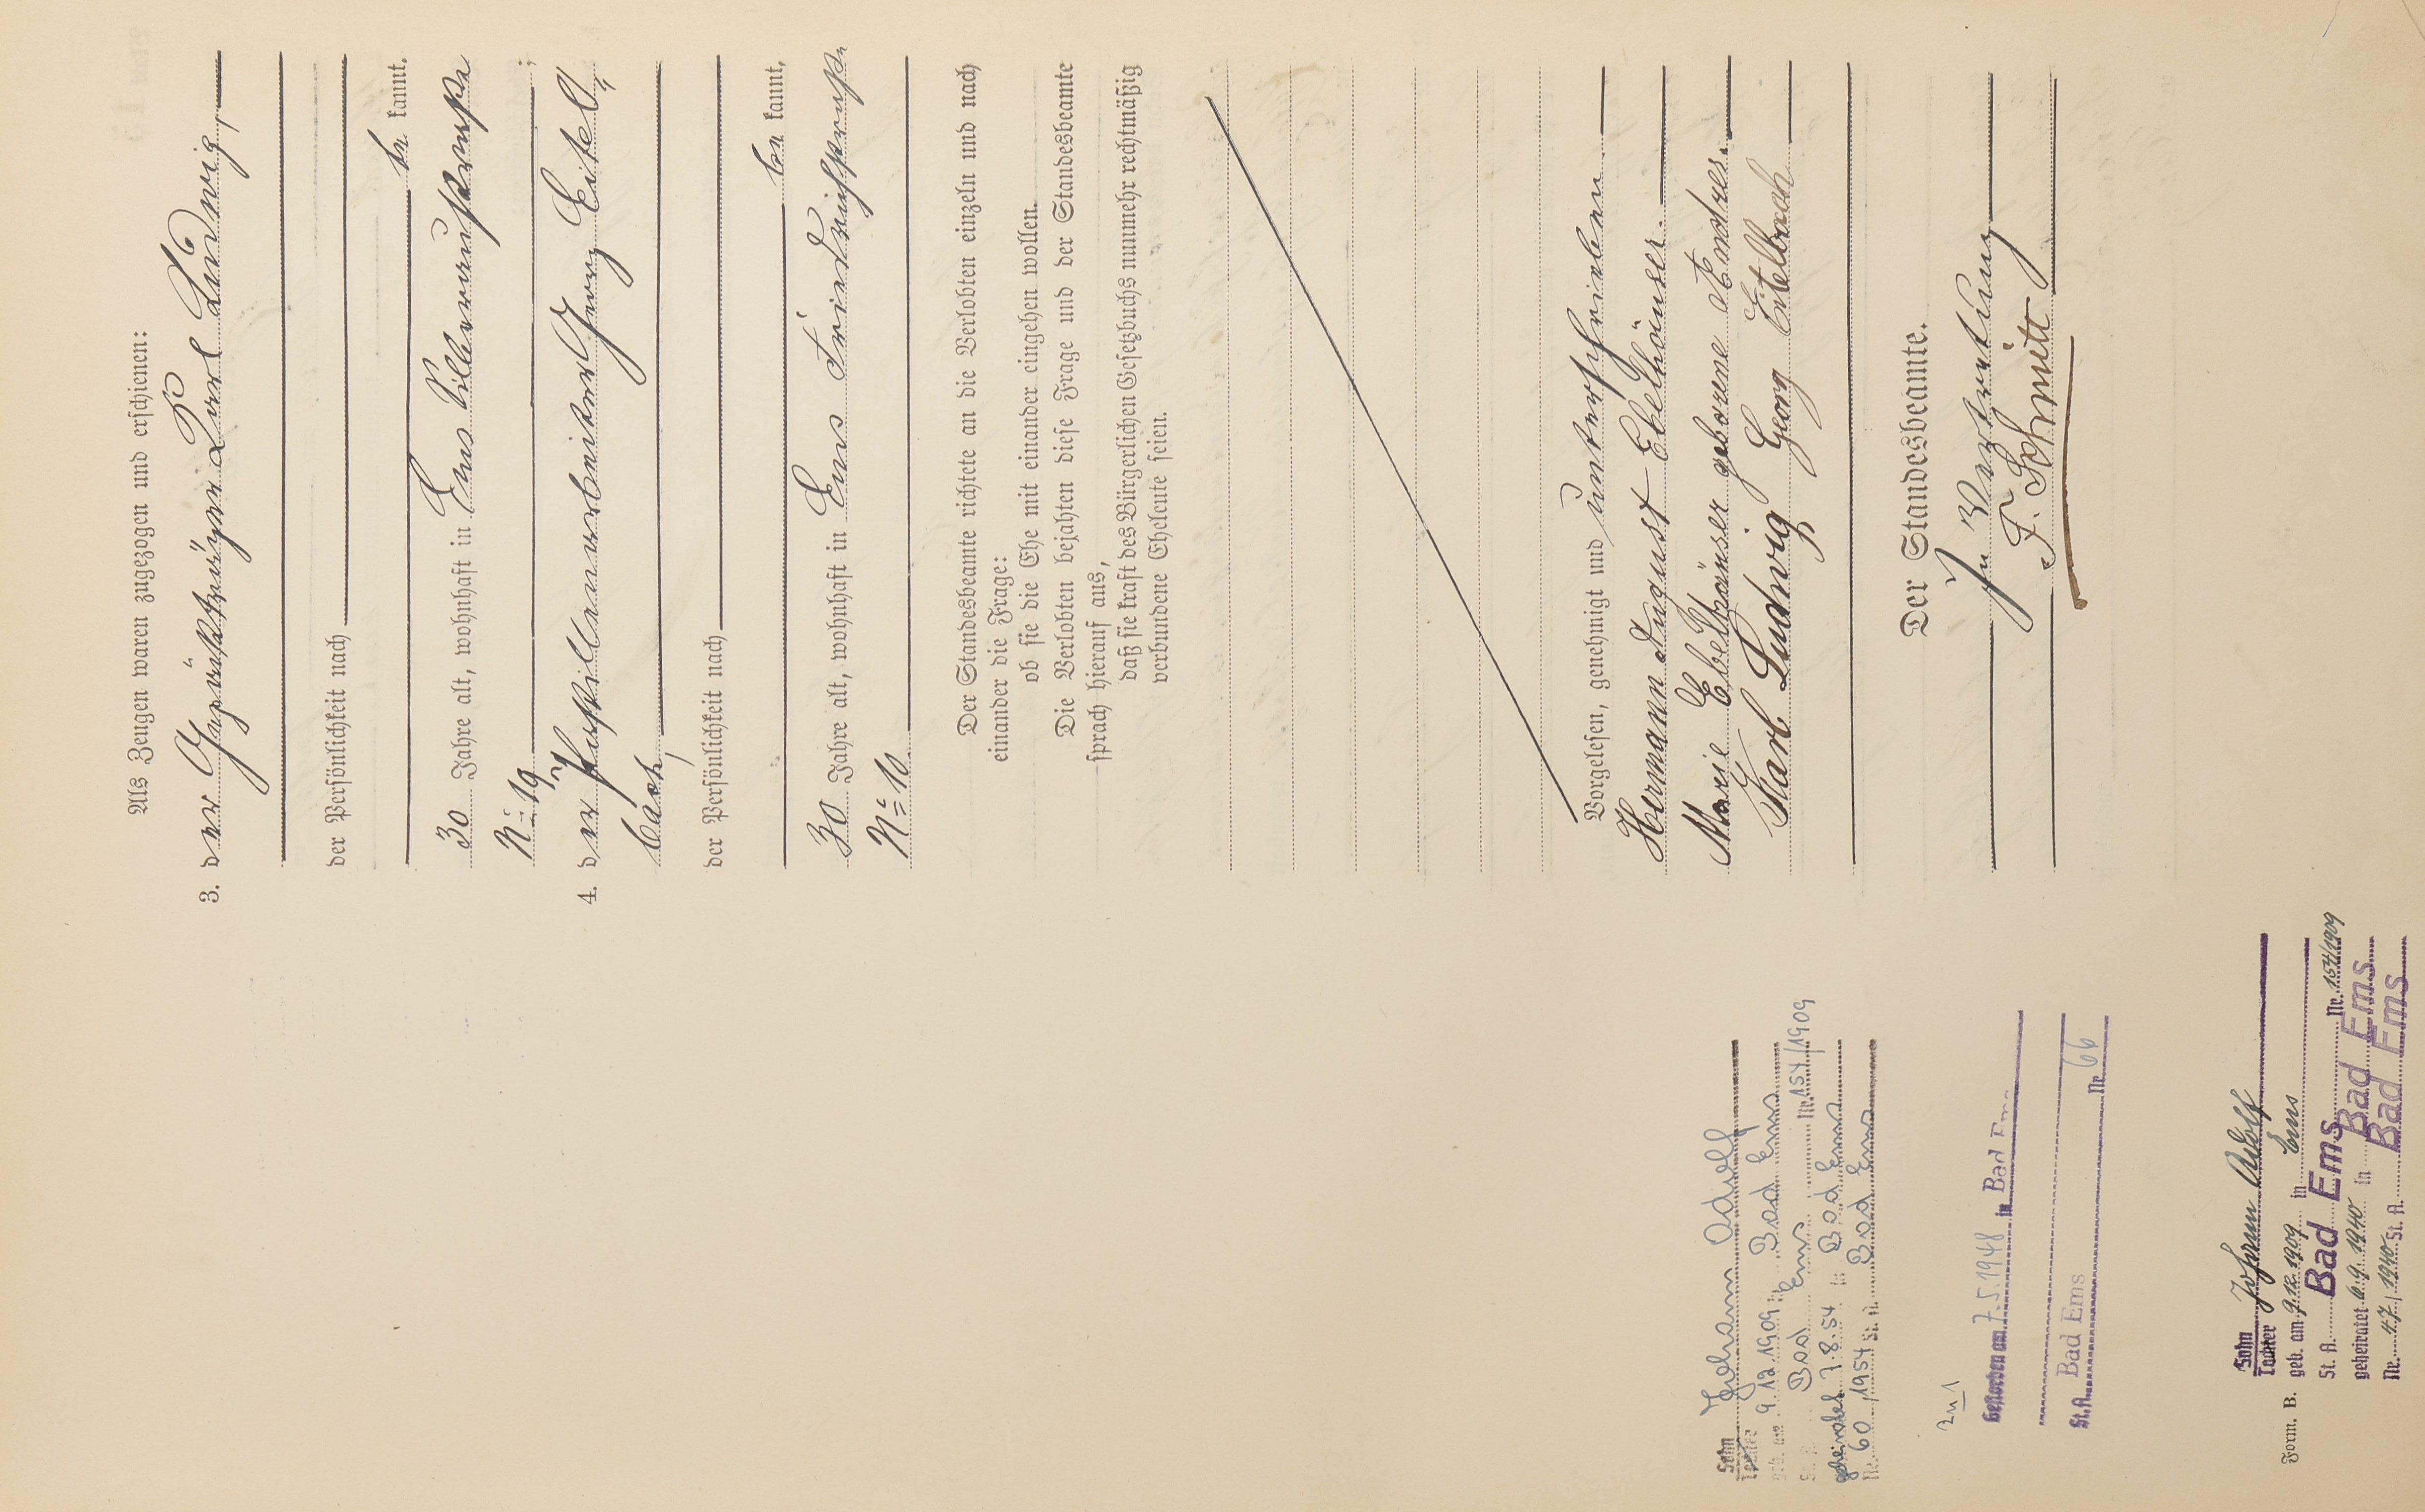 Als Zeugen waren zugezogen und erschienen:
3. der Karl Ludwig,
der Persönlichkeit nach
be kannt,
30 Jahre alt, wohnhaft in Ems Silberaustraße
No 19;
4. der Hüttenarbeiter Georg Eitel
bach,
der Persönlichkeit nach
be kannt,
30 Jahre alt, wohnhaft in Ems Friedrichstraße
No 10
Der Standesbeamte richtete an die Verlobten einzeln und nach
einander die Frage:
ob sie die Ehe mit einander eingehen wollen.
Die Verlobten bejahten diese Frage und der Standesbeamte
sprach hierauf aus,
daß sie kraft des Bürgerlichen Gesetzbuchs nunmehr rechtmäßig
verbundene Eheleute seien.
Vorgelesen, genehmigt und unterschrieben
Hermann August Ebelhäuser.
Marie Ebelhäuser geborene Endres.
Karl Ludwig Georg Eitelbach
Der Standesbeamte.
In Vertretung
F. Schmitt
Sohn Johann Adolf
Tochter
geb. am 9.12.1909 in Bad Ems
St. A. Bad Ems Nr. 154/1909
geheiratet 7.8.54 in Bad Ems
Nr. 60/1954 St. A. Bad Ems
Zu 1
Gestorben am 7.5.1948 in Bad Ems
St. A. Bad Ems Nr. 66
Sohn Johann Adolf
Tochter
geb. am 9.12.1909 in Ems
St. A. Bad Ems Nr. 154/1909
geheiratet 6.9.1940 in Bad Ems
Nr. 47/1940 St. A. Bad Ems
Form. B.